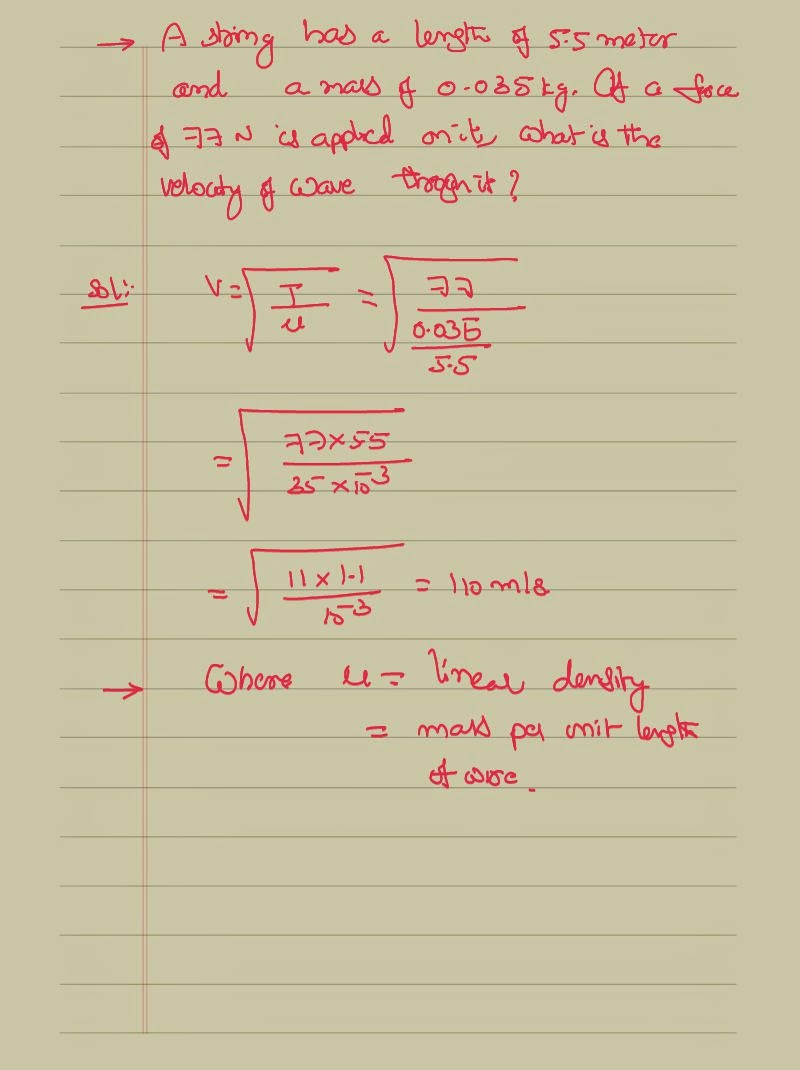 → A string has a length of 5.5 meter
and a mass of 0.035 kg. If a force
of 77 N is applied on it, what is the
velocity of wave throgh it?
Sol:- V = √(T/u) = √(77/(0.035/5.5))
= √(77×55/35×10⁻³)
= √(11×1.1/10⁻³) = 110 m/s
→ Where u = linear density
= mass per unit length
of wire.